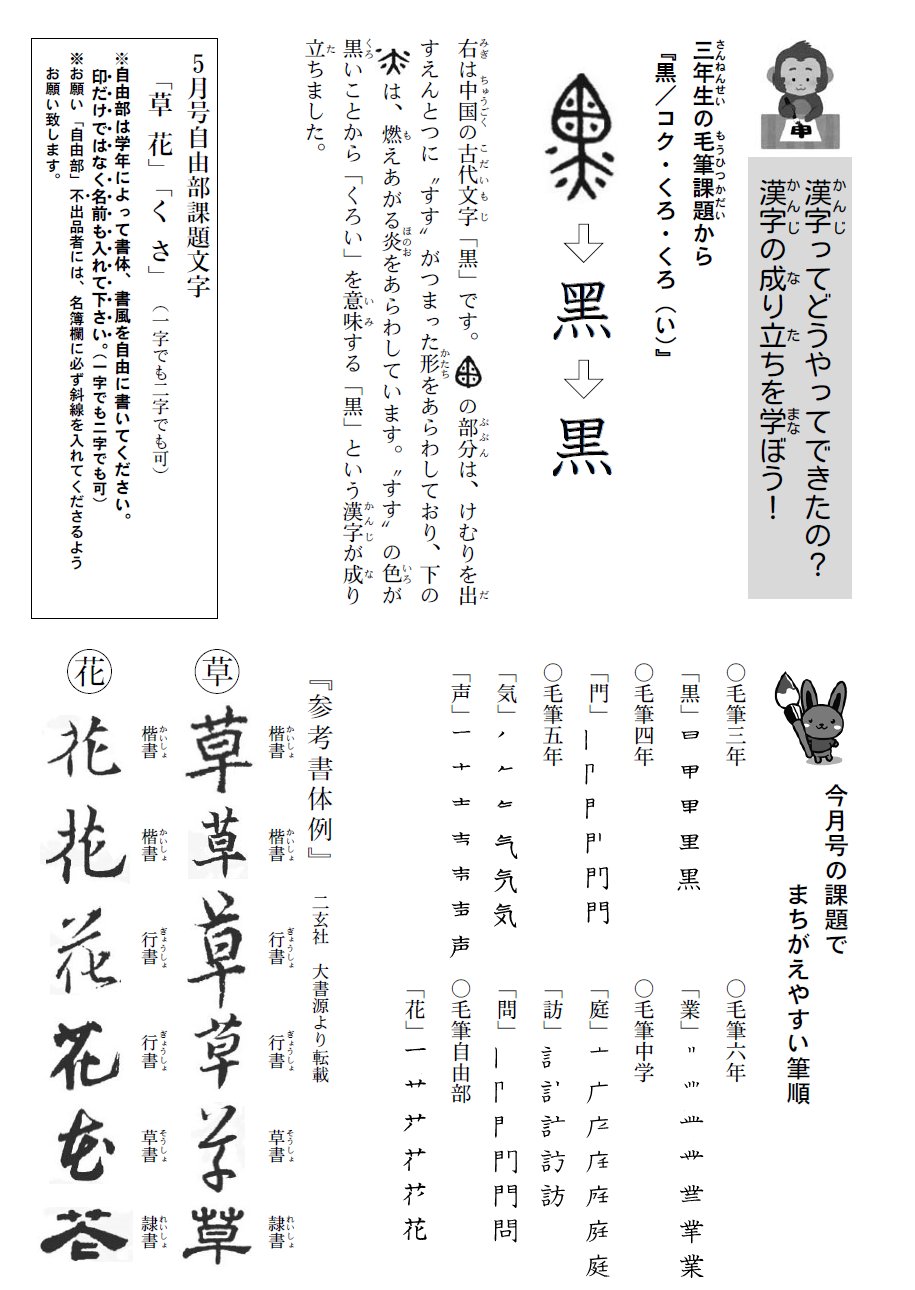 漢字ってどうやってできたの？
漢字の成り立ちを学ぼう！
三年生の毛筆課題から
『黒／コク・くろ・くろ（い）』
黑
黒
右は中国の古代文字「黒」です。の部分は、けむりを出
すえんとつに〝すす〟がつまった形をあらわしており、下の
は、燃えあがる炎をあらわしています。〝すす〟の色が
黒いことから「くろい」を意味する「黒」という漢字が成り
立ちました。
5月号自由部課題文字
「草花」「くさ」（一字でも二字でも可）
※自由部は学年によって書体、書風を自由に書いてください。
印だけではなく名前も入れて下さい。（一字でも二字でも可）
※お願い「自由部」不出品者には、名簿欄に必ず斜線を入れてくださるよう
お願い致します。
今月号の課題で
まちがえやすい筆順
〇毛筆三年
「黒」甲里黒
〇毛筆四年
「門」門
〇毛筆五年
「気」気
「声」声
〇毛筆六年
「業」業
〇毛筆中学
「庭」庭
「訪」訪
「問」門問
〇毛筆自由部
「花」花
『参考書体例』　二玄社　大書源より転載
草
楷書　楷書　行書　行書　草書　隷書
草　草　草　草　草　草
花
楷書　楷書　行書　行書　草書　隷書
花　花　花　花　花　花